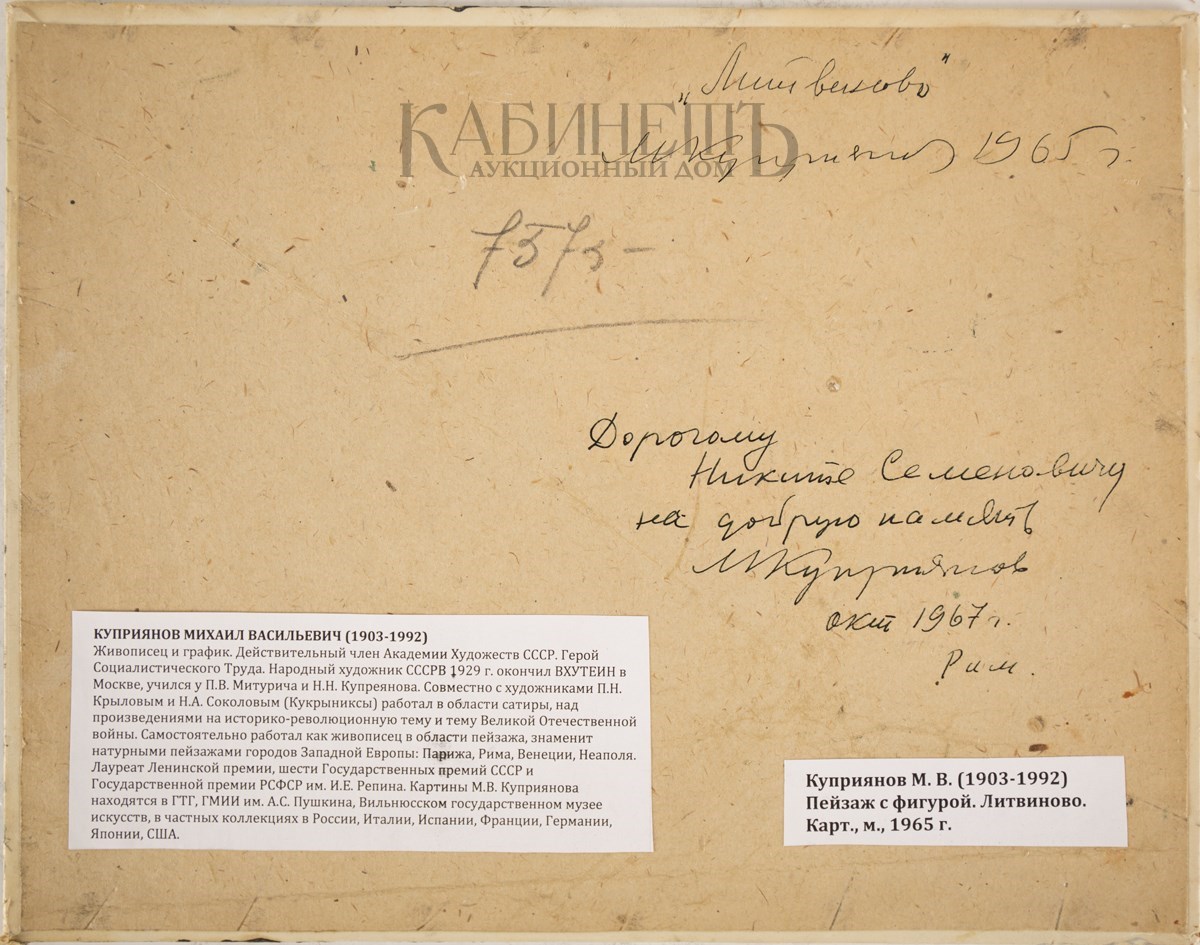 „Литвиново"
КАБИНЕТЪ
АУКЦИОННЫЙ ДОМ
МКуприянов 1965 г.
7575-
Дорогому
Никите Семеновичу
на добрую память
МКуприянов
окт 1967 г.
Рим.
КУПРИЯНОВ МИХАИЛ ВАСИЛЬЕВИЧ (1903-1992)
Живописец и график. Действительный член Академии Художеств СССР. Герой
Социалистического Труда. Народный художник СССРВ 1929 г. окончил ВХУТЕИН в
Москве, учился у П.В. Митурича и Н.Н. Купреянова. Совместно с художниками П.Н.
Крыловым и Н.А. Соколовым (Кукрыниксы) работал в области сатиры, над
произведениями на историко-революционную тему и тему Великой Отечественной
войны. Самостоятельно работал как живописец в области пейзажа, знаменит
натурными пейзажами городов Западной Европы: Парижа, Рима, Венеции, Неаполя.
Лауреат Ленинской премии, шести Государственных премий СССР и
Государственной премии РСФСР им. И.Е. Репина. Картины М.В. Куприянова
находятся в ГТГ, ГМИИ им. А.С. Пушкина, Вильнюсском государственном музее
искусств, в частных коллекциях в России, Италии, Испании, Франции, Германии,
Японии, США.
Куприянов М. В. (1903-1992)
Пейзаж с фигурой. Литвиново.
Карт., м., 1965 г.